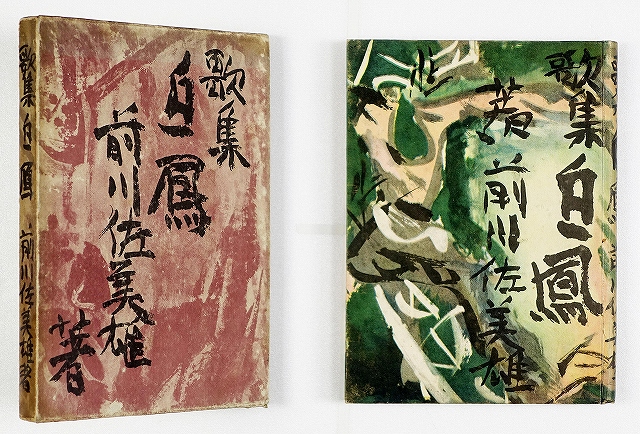 歌集 白鳳 前川佐美雄著
歌集
白鳳
前川佐美雄
著
歌集
白鳳
前川佐美雄
著